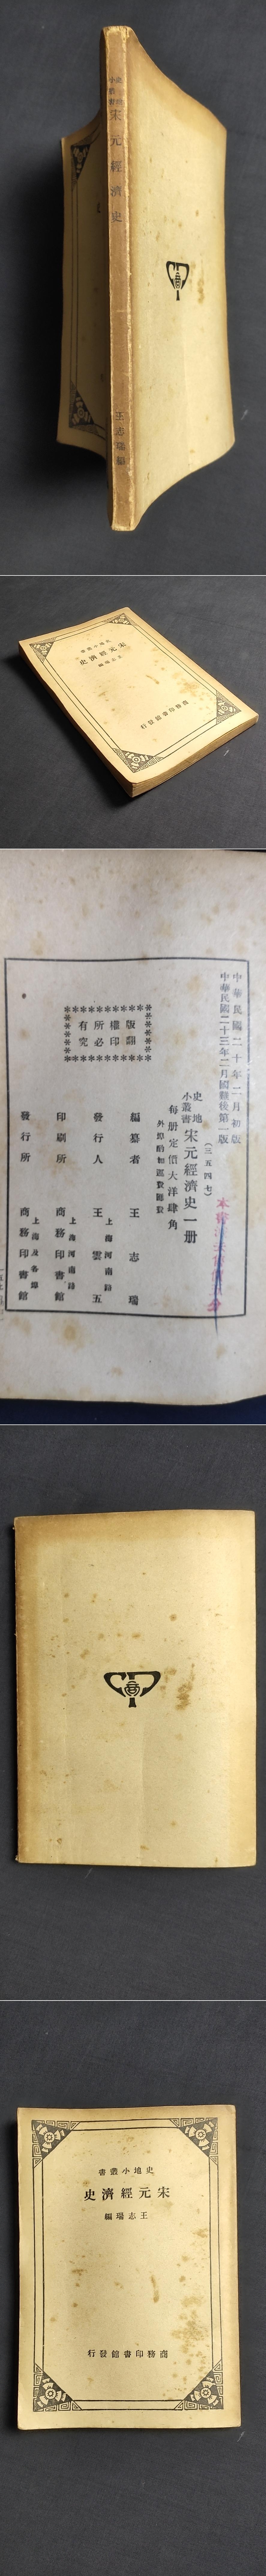 史地
小叢書
宋元經濟史
王志瑞編
史地小叢書
宋元經濟史
王志瑞編
商務印書館發行
中華民國二十年二月初版
中華民國二十三年二月國難後第一版
(三五四七)
史地
小叢書
宋元經濟史一册
每册定價大洋肆角
外埠酌加運費匯費
編纂者 王志瑞
發行人 王雲五
上海河南路
印刷所 商務印書館
上海河南路
發行所 商務印書館
上海及各埠
版權所有
翻印必究
史地小叢書
宋元經濟史
王志瑞編
商務印書館發行